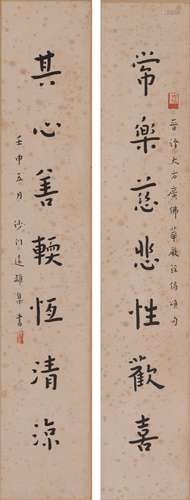 常樂慈悲性歡喜
晉譯大方廣佛華嚴經偈頌句
其心善輭恆清涼
壬申五月 沙門 集書